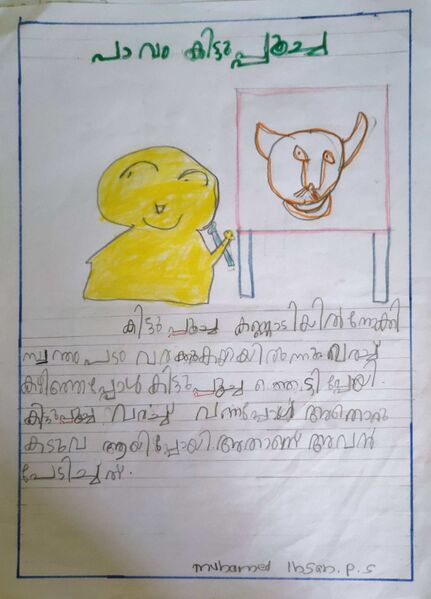 പാവം കിട്ടുപ്പൂച്ച
കിട്ടു പൂച്ച കണ്ണാടിയിൽ നോക്കി
സ്വന്തം പടം വരക്കുകയായിരുന്നു വരച്ച്
കഴിഞ്ഞപ്പോൾ കിട്ടു പൂച്ച ഞെട്ടിപ്പോയി.
കിട്ടുപൂച്ച വരച്ച് വന്നപ്പോൾ അതൊരു
കടുവ ആയിപ്പോയി. അതാണ് അവൻ
പേടിച്ചത്.